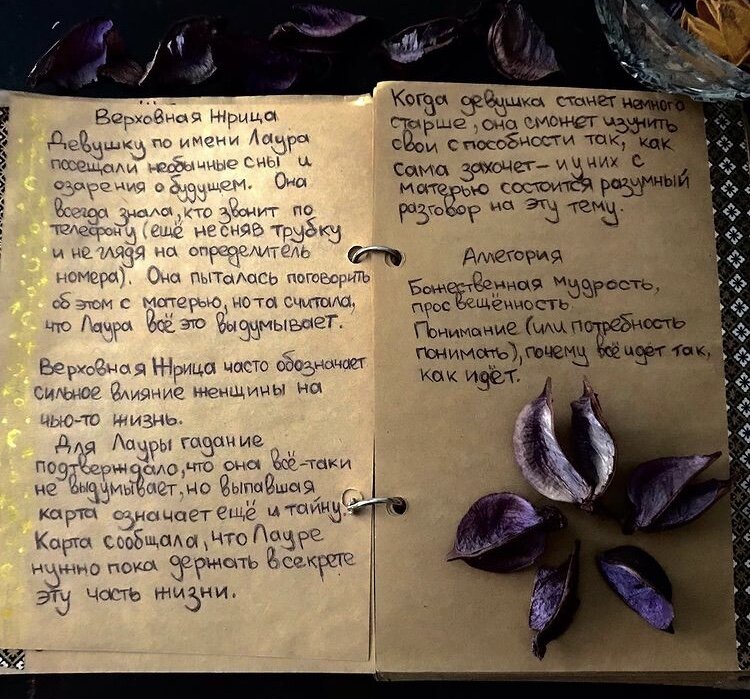 Верховная Жрица
Девушку по имени Лаура
посещали необычные сны и
озарения о будущем. Она
всегда знала, кто звонит по
телефону (ещё не сняв трубку
и не глядя на определитель
номера). Она пыталась поговорить
об этом с матерью, но та считала,
что Лаура всё это выдумывает.
Верховная Жрица часто обозначает
сильное влияние женщины на
чью-то жизнь.
Для Лауры гадание
подтверждало, что она всё-таки
не выдумывает, но выпавшая
карта означает ещё и тайну.
Карта сообщала, что Лауре
нужно пока держать в секрете
эту часть жизни.
Когда девушка станет немного
старше, она сможет изучить
свои способности так, как
сама захочет – и у них с
матерью состоится разумный
разговор на эту тему.
Аллегория
Божественная мудрость,
просвещённость.
Понимание (или потребность
понимать), почему всё идёт так,
как идёт.